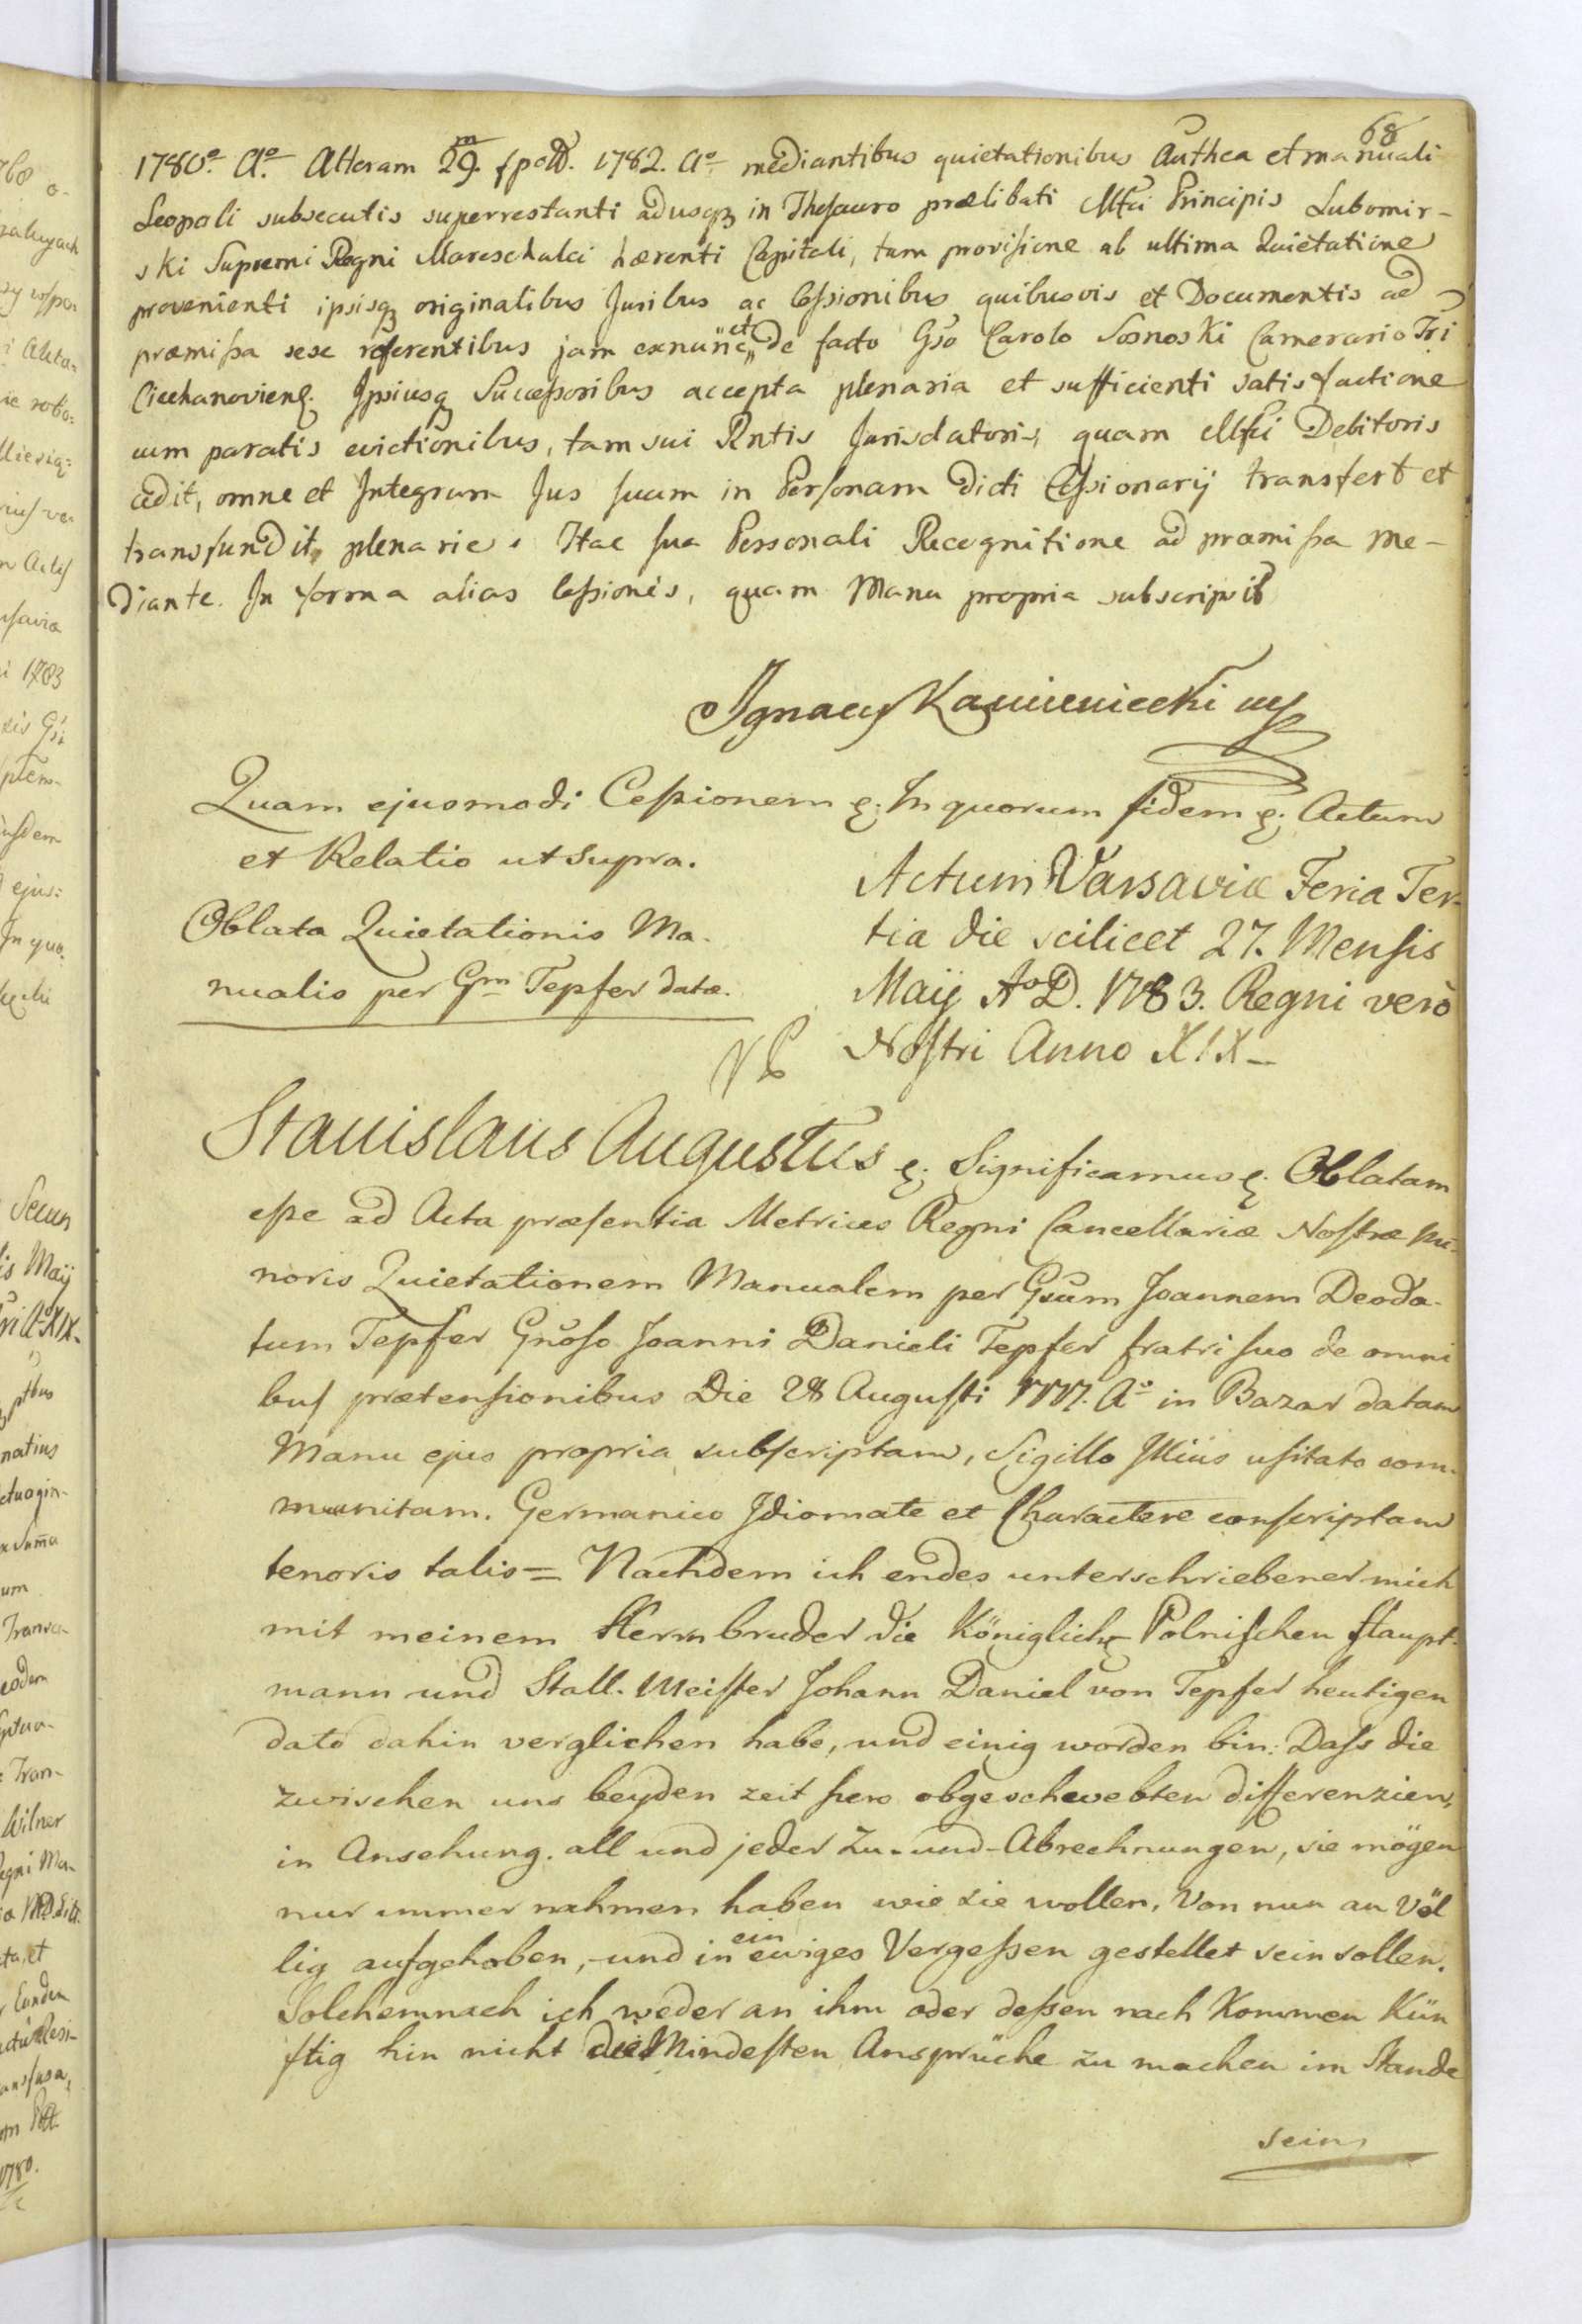 68
1780.º Aº. Alteram 29.m 7bris. 1782. Aº mediantibus quietationibus Authca et manuali
Leopoli subsecutis superrestanti adusqz in Thesauro prælibati Mfci Principis Lubomir-
ski Supremi Regni Mareschalci hærenti Capitali, tum provisione ab ultima Quietatione
provenienti ipsisqz originalibus Juribus ac Cessionibus quibusvis et Documentis ad
præmissa sese referentibus jam exnunc et de facto Gso Carolo Sosnoski Camerario Tri
Ciechanovien. Ipsiusqz Successoribus accepta plenaria et sufficienti satisfactione
cum paratis evictionibus, tam sui Rntis Jurisdatoris, quam Mfci Debitoris
cedit, omne et Integrum Jus suum in Personam dicti Cessionarij transfert et
transfundit plenarie. Hac sua Personali Recognitione ad præmissa me-
diante. In forma alias Cessionis, quam Manu propria subscripsit
Ignacy Kamieniecki mp
Quam ejusmodi Cessionem &. In quorum fidem &. Actum
et Relatio ut Supra.
Oblata Quietationis Ma-
nualis per Gm Tepfer datæ.
Actum Varsaviæ Feria Ter-
tia die scilicet 27. Mensis
Maij Aº D. 1783. Regni verò
Nostri Anno XIX-
Stanislaus Augustus &. Significamus &. Oblatam
esse ad Acta præsentia Metrices Regni Cancellariæ Nostræ Mi-
noris Quietationem Manualem per Gsum Joannem Deoda-
tum Tepfer Gnoso Joanni Danieli Tepfer fratri suo de omni
bus prætensionibus Die 28 Augusti 1777. Aº in Bazar datam
Manu ejus propria subscriptam, Sigillo Illius usitato com-
munitam. Germanico Idiomate et Charactere conscriptam
tenoris talis = Nachdem ich endes unterschriebener mich
mit meinem Herrn bruder die Königliche Polnischen Haupt-
mann und Stall-Meister Johann Daniel von Tepfer heutigen
dato dahin verglichen habe, und einig worden bin: Dass die
zwischen uns beyden zeit hero obgeschwebten differenzien,
in Ansehung. all und jeder Zu-und-Abrechnungen, sie mögen
nur immer nahmen haben wie sie wollen, Von nun an Völ
lig aufgehoben, und in ein ewiges Vergessen gestellet sein sollen.
Solchemnach ich weder an ihm oder dessen nach Kommen Kün
ftig hin nicht die Mindesten Ansprüche zu machen im Stande
sein